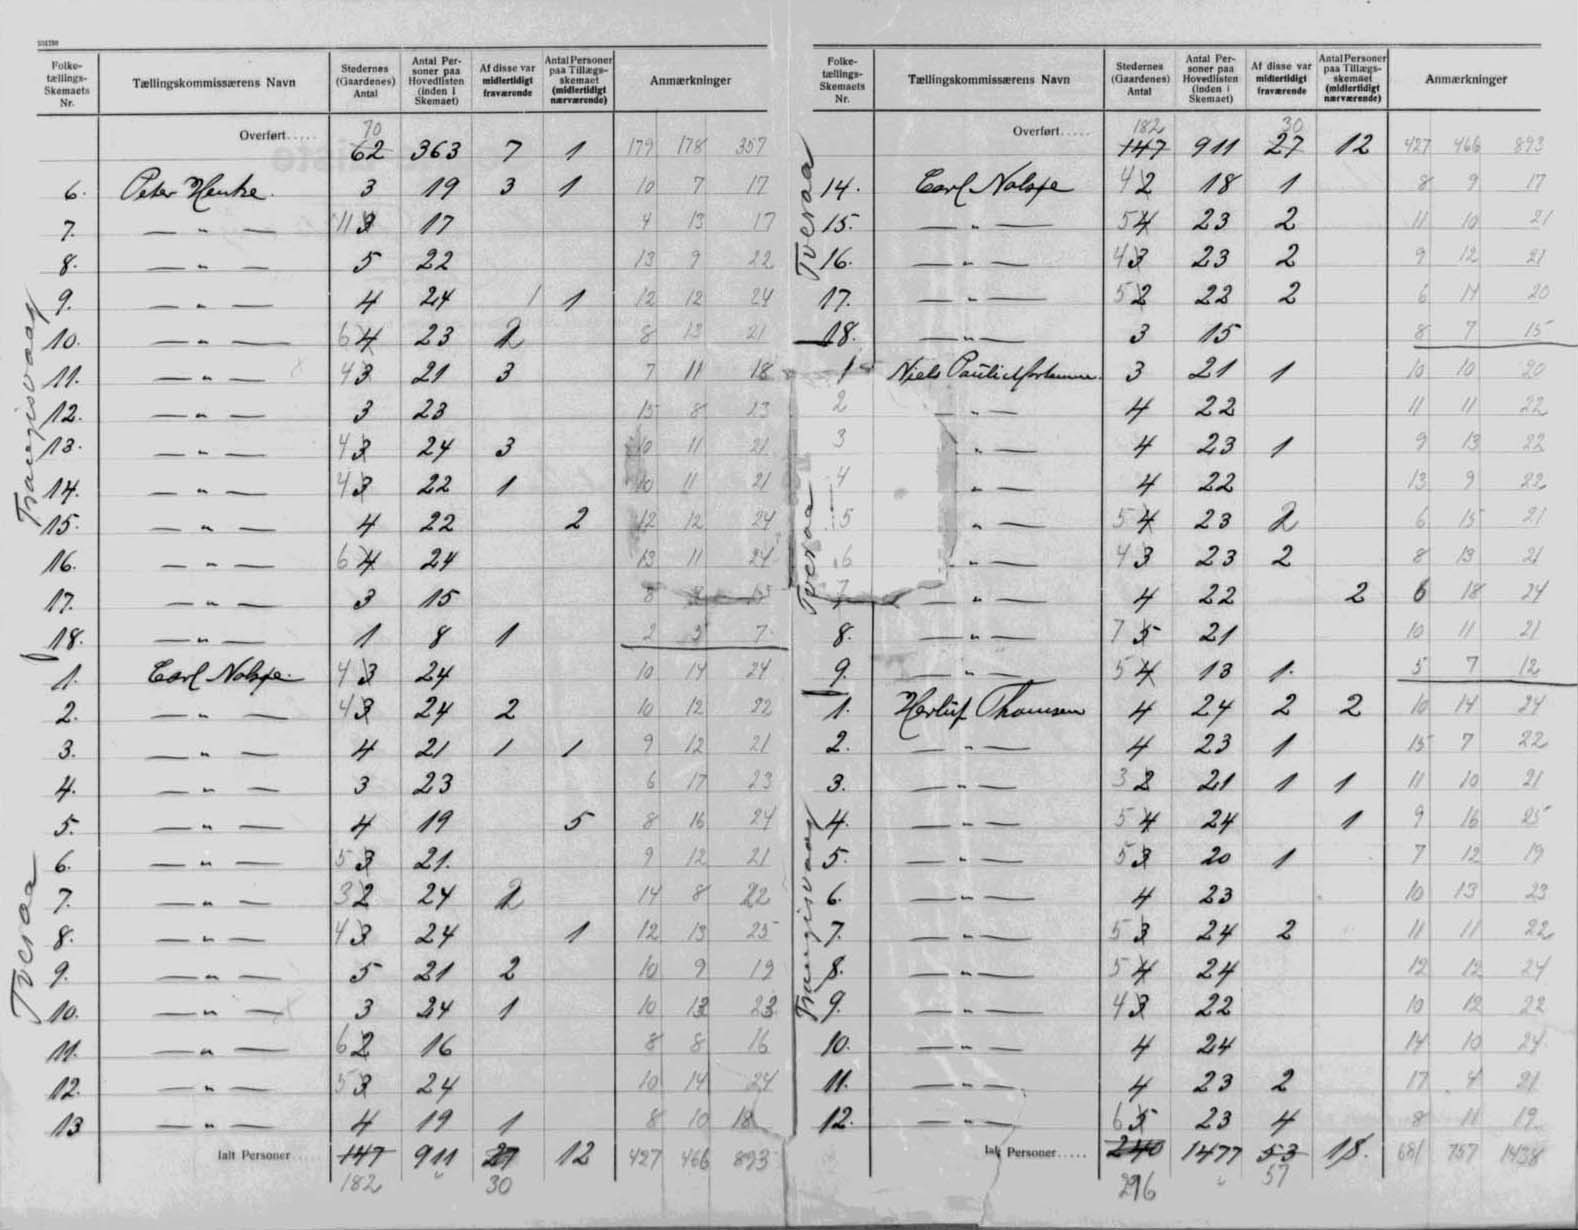 Folke-
tællings-
Skemaets
Nr.
Tællingskommissærens Navn
Stedernes
(Gaardenes)
Antal
Antal Per-
soner paa
Hovedlisten
(inden i
Skemaet)
Af disse var
midlertidigt
fraværende
Antal Personer
paa Tillægs-
skemaet
(midlertidigt
nærværende)
Anmærkninger
Overført..... 70 62 363 7 1 179 178 357
Frangisvaag
6. Peter Henke. 3 19 3 1 10 7 17
7. — " — 11 3 17 4 13 17
8. — " — 5 22 13 9 22
9. — " — 4 24 1 1 12 12 24
10. — " — 6 4 23 2 8 13 21
11. — " — 4 3 21 3 7 11 18
12. — " — 3 23 15 8 23
13. — " — 4 3 24 3 10 11 21
14. — " — 4 3 22 1 10 11 21
15. — " — 4 22 2 12 12 24
16. — " — 6 4 24 13 11 24
17. — " — 3 15 8 15
18. — " — 1 8 1 2 5 7
Tveraa
1. Carl Nolsøe. 4 3 24 10 14 24
2. — " — 4 3 24 2 10 12 22
3. — " — 4 21 1 1 9 12 21
4. — " — 3 23 6 17 23
5. — " — 4 19 5 8 16 24
6. — " — 5 3 21. 9 12 21
7. — " — 3 2 24 2 14 8 22
8. — " — 4 3 24 1 12 13 25
9. — " — 5 21 2 10 9 19
10. — " — 3 24 1 10 13 23
11. — " — 6 2 16 8 8 16
12. — " — 5 3 24 10 14 24
13 — " — 4 19 1 8 10 18
Ialt Personer..... 147 911 27 12 427 466 893
182 30
Folke-
tællings-
Skemaets
Nr.
Tællingskommissærens Navn
Stedernes
(Gaardenes)
Antal
Antal Per-
soner paa
Hovedlisten
(inden i
Skemaet)
Af disse var
midlertidigt
fraværende
Antal Personer
paa Tillægs-
skemaet
(midlertidigt
nærværende)
Anmærkninger
Overført..... 182 147 911 30 27 12 427 466 893
Tveraa
14. Carl Nolsøe 4 2 18 1 8 9 17
15. — " — 5 4 23 2 11 10 21
16. — " — 4 3 23 2 9 12 21
17. — " — 5 2 22 2 6 14 20
18. — " — 3 15 8 7 15
Tveraa
1 Niels Pauli Mortensen. 3 21 1 10 10 20
2 — " — 4 22 11 11 22
3 " — 4 23 1 9 13 22
4 " — 4 22 13 9 22
5 " — 5 4 23 2 6 15 21
6 — " — 4 3 23 2 8 13 21
7 — " — 4 22 2 6 18 24
8. — " — 7 5 21 10 11 21
9. — " — 5 4 13 1. 5 7 12
Frangisvaag
1. Herluf Thomsen 4 24 2 2 10 14 24
2. — " — 4 23 1 15 7 22
3. — " — 3 2 21 1 1 11 10 21
4. — " — 5 4 24 1 9 16 25
5. — " — 5 3 20 1 7 12 19
6. — " — 4 23 10 13 23
7. — " — 5 3 24 2 11 11 22
8. — " — 5 4 24 12 12 24
9. — " — 4 3 22 10 12 22
10. — " — 4 24 14 10 24
11. — " — 4 23 2 17 4 21
12. — " — 6 5 23 4 8 11 19
Ialt Personer..... 240 1477 53 18. 681 757 1438
296 57